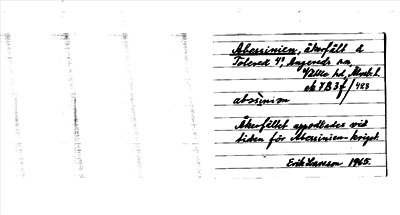 Abessinien, åkerfält å
Tolered 4², Angereds sn,
Vättle hd, Älvsb. l.
ek 7B3f/428
abɔsi̇niən
Åkerfältet uppodlades vid
tiden för Abessinien-kriget.
Erik Larsson 1965.